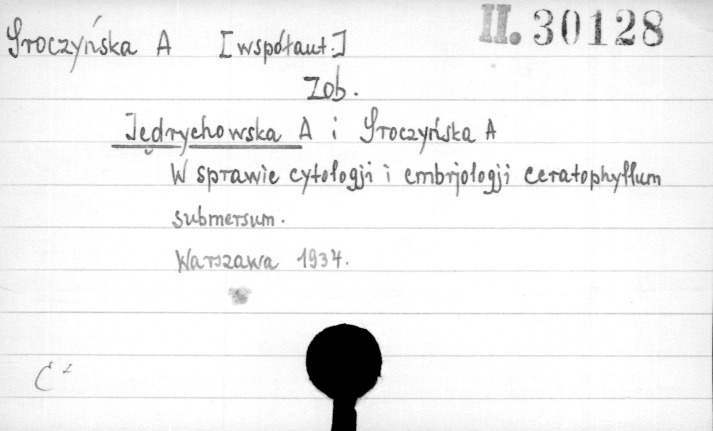 Sroczyńska A [współaut.] II. 30128
Zob.
Jędrychowska A i Sroczyńska A
W sprawie cytologji i embrjologji ceratophyllum
submersum.
Warszawa 1934.